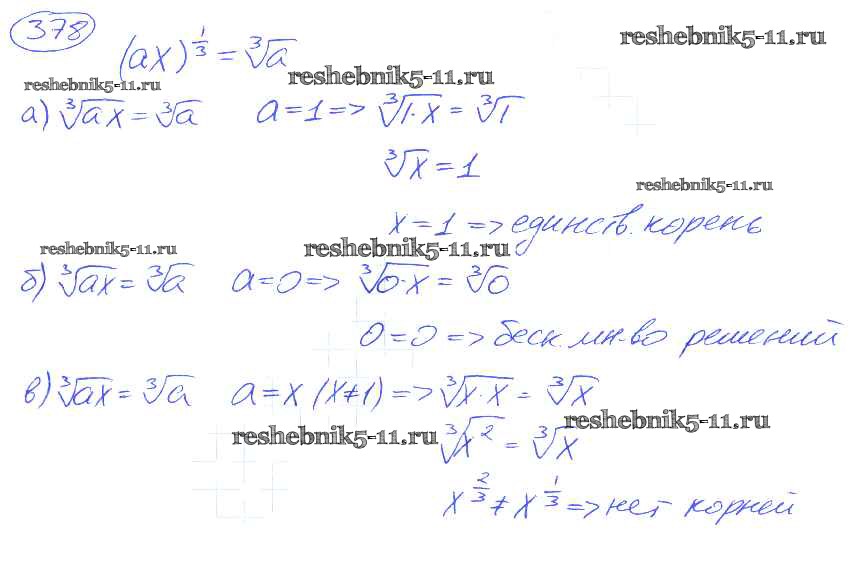 378
(ax)^{1/3} = ∛a
reshebnik5-11.ru
reshebnik5-11.ru
reshebnik5-11.ru
а) ∛ax = ∛a a = 1 => ∛1·x = ∛1
∛x = 1
reshebnik5-11.ru
x = 1 => единств. корень
reshebnik5-11.ru
reshebnik5-11.ru
б) ∛ax = ∛a a = 0 => ∛0·x = ∛0
0 = 0 => беск. мн-во решений
в) ∛ax = ∛a a = x (x ≠ 1) => ∛x·x = ∛x
reshebnik5-11.ru
reshebnik5-11.ru
∛x² = ∛x
x^{2/3} ≠ x^{1/3} => нет корней